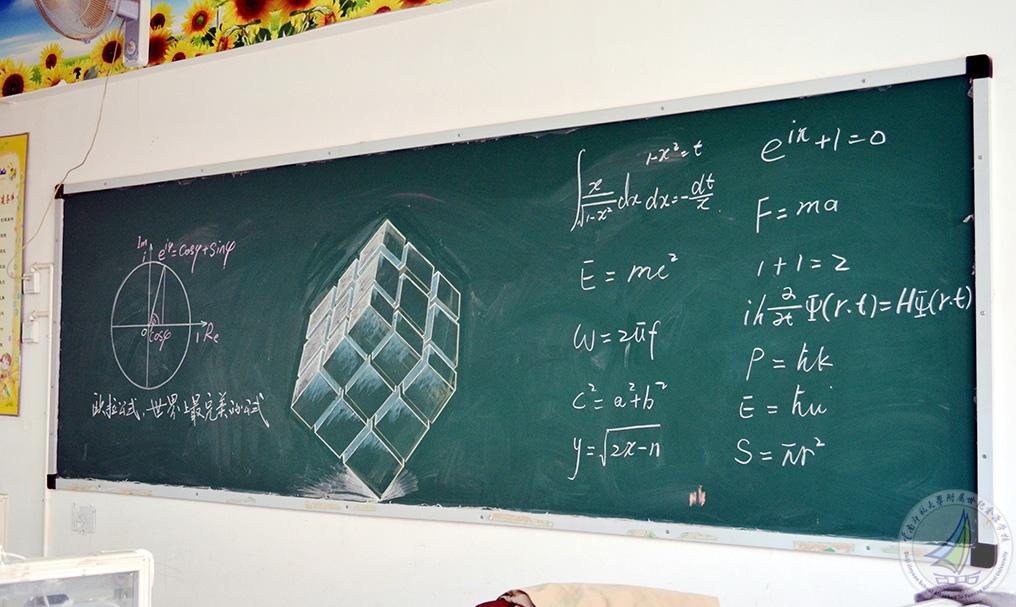 Im
i e^{iφ}=cosφ+sinφ
0 cosφ 1 Re
欧拉公式.世界上最完美的公式
1-x²=t
∫ x/√1-x² dx dx=-dt/x
E=mc²
W=2πf
c²=a²+b²
y=√2x-n
e^{iπ}+1=0
F=ma
1+1=2
iħ ∂/∂t Ψ(r.t)=HΨ(r.t)
P=ħk
S=πr²